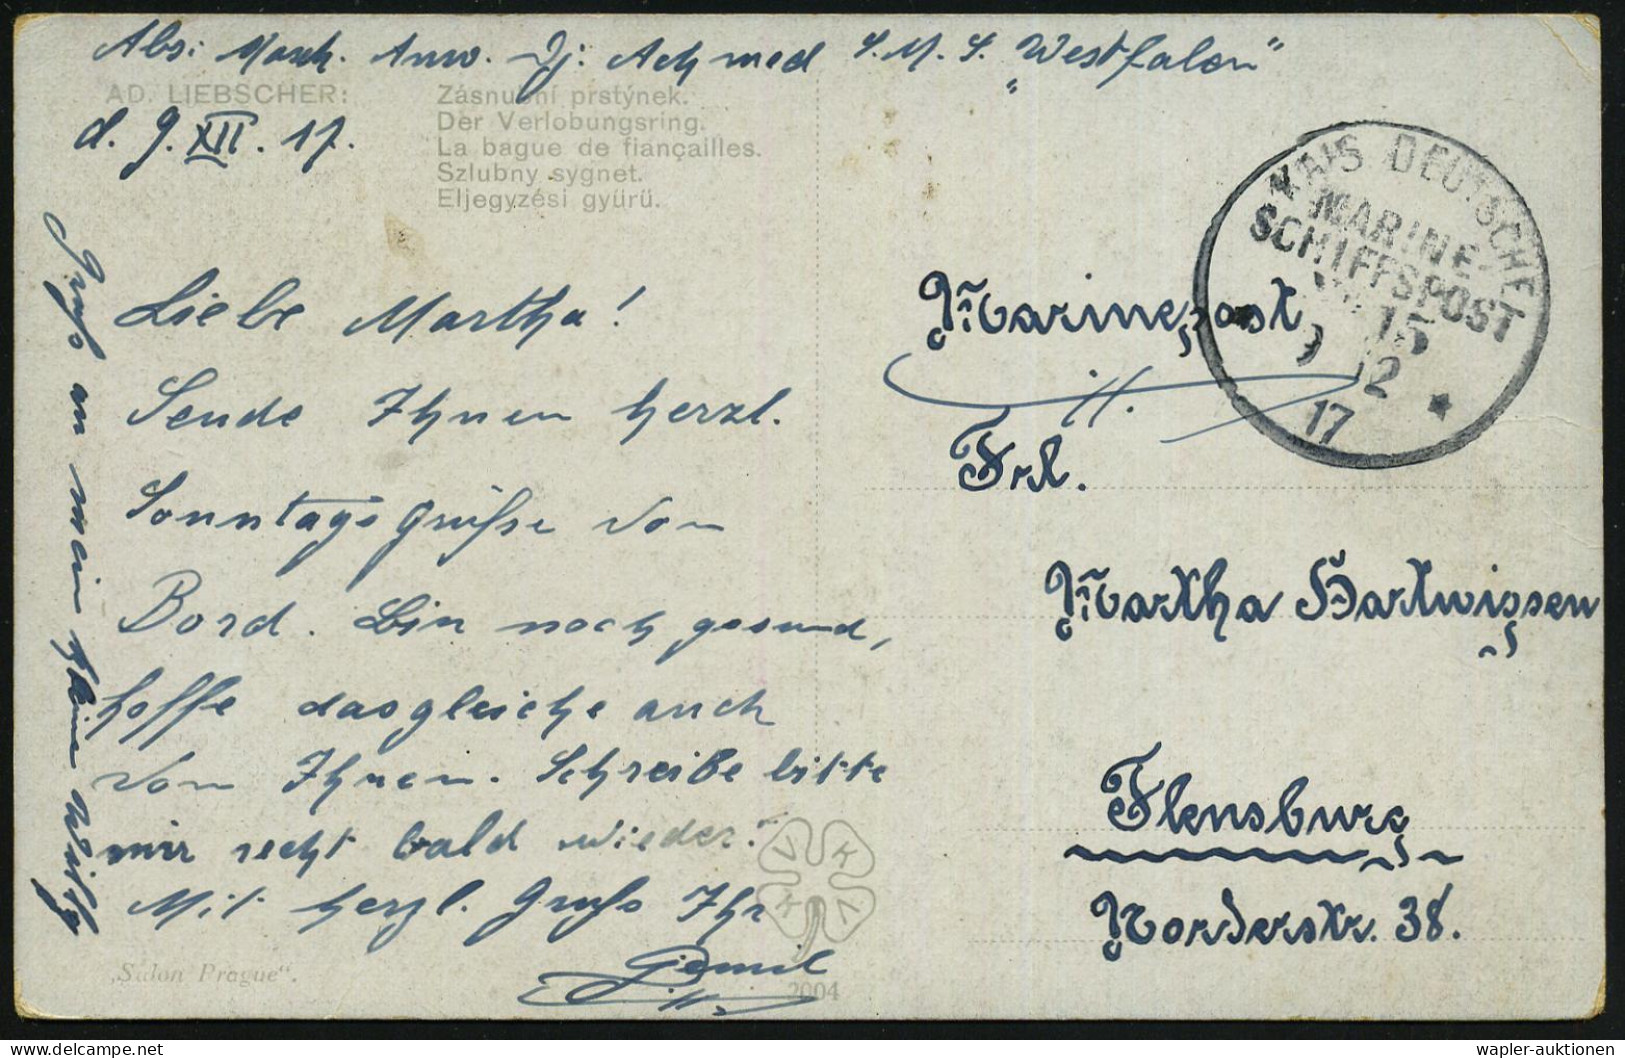 Abs: Masch. Anw. Dj: Achmed S.M.S. „Westfalen"
AD. LIEBSCHER:
Zásnubní prstýnek.
Der Verlobungsring.
La bague de fiançailles.
Szlubny sygnet.
Eljegyzési gyürü.
d. 9. XII. 17.
Liebe Martha!
Sende Ihnen herzl.
Sonntagsgrüße von
Bord. Bin noch gesund,
hoffe dasgleiche auch
von Ihnen. Schreibe bitte
mir recht bald wieder!
Mit herzl. Gruß Ihr
Djemil
Gruß an mein kleine Willy
„Salon Prague".
2004
KAIS DEUTSCHE
MARINE-
SCHIFFSPOST
No 15
9 12
17
Marinepost
Frl.
Martha Hartwigsen
Flensburg
Norderstr. 38.
wapler-auktionen